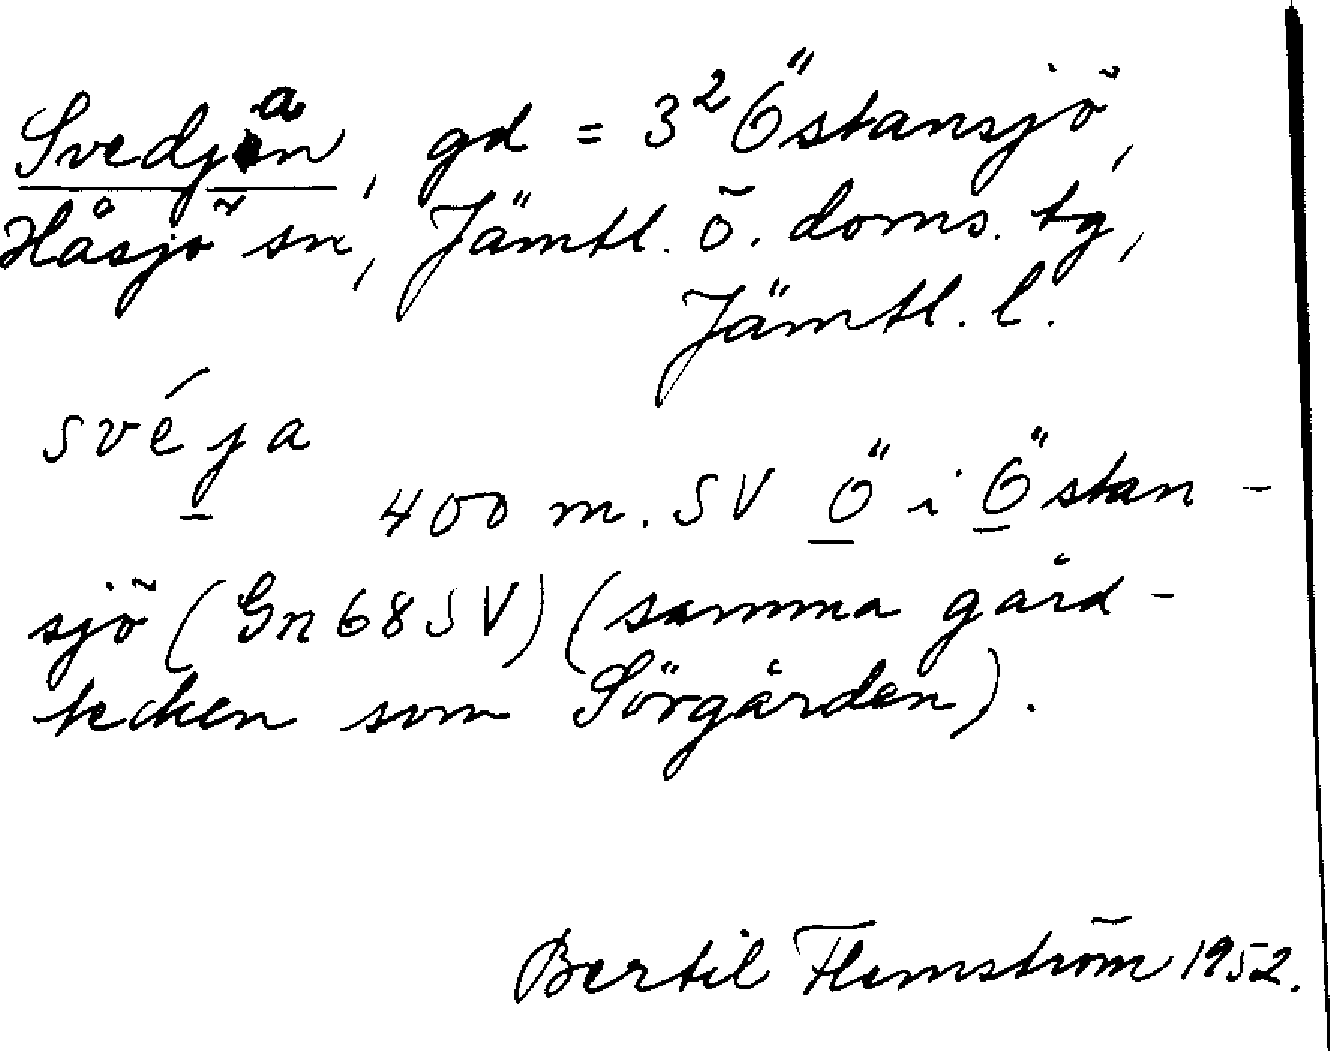 Svedjan, gd = 3² Östansjö,
Håsjö sn, Jämtl. ö. doms. tg,
Jämtl. l.
svéja
400 m. SV Ö i Östan-
sjö (Gn 68 SV) (samma gård-
tecken som Sörgården).
Bertil Flemström 1952.